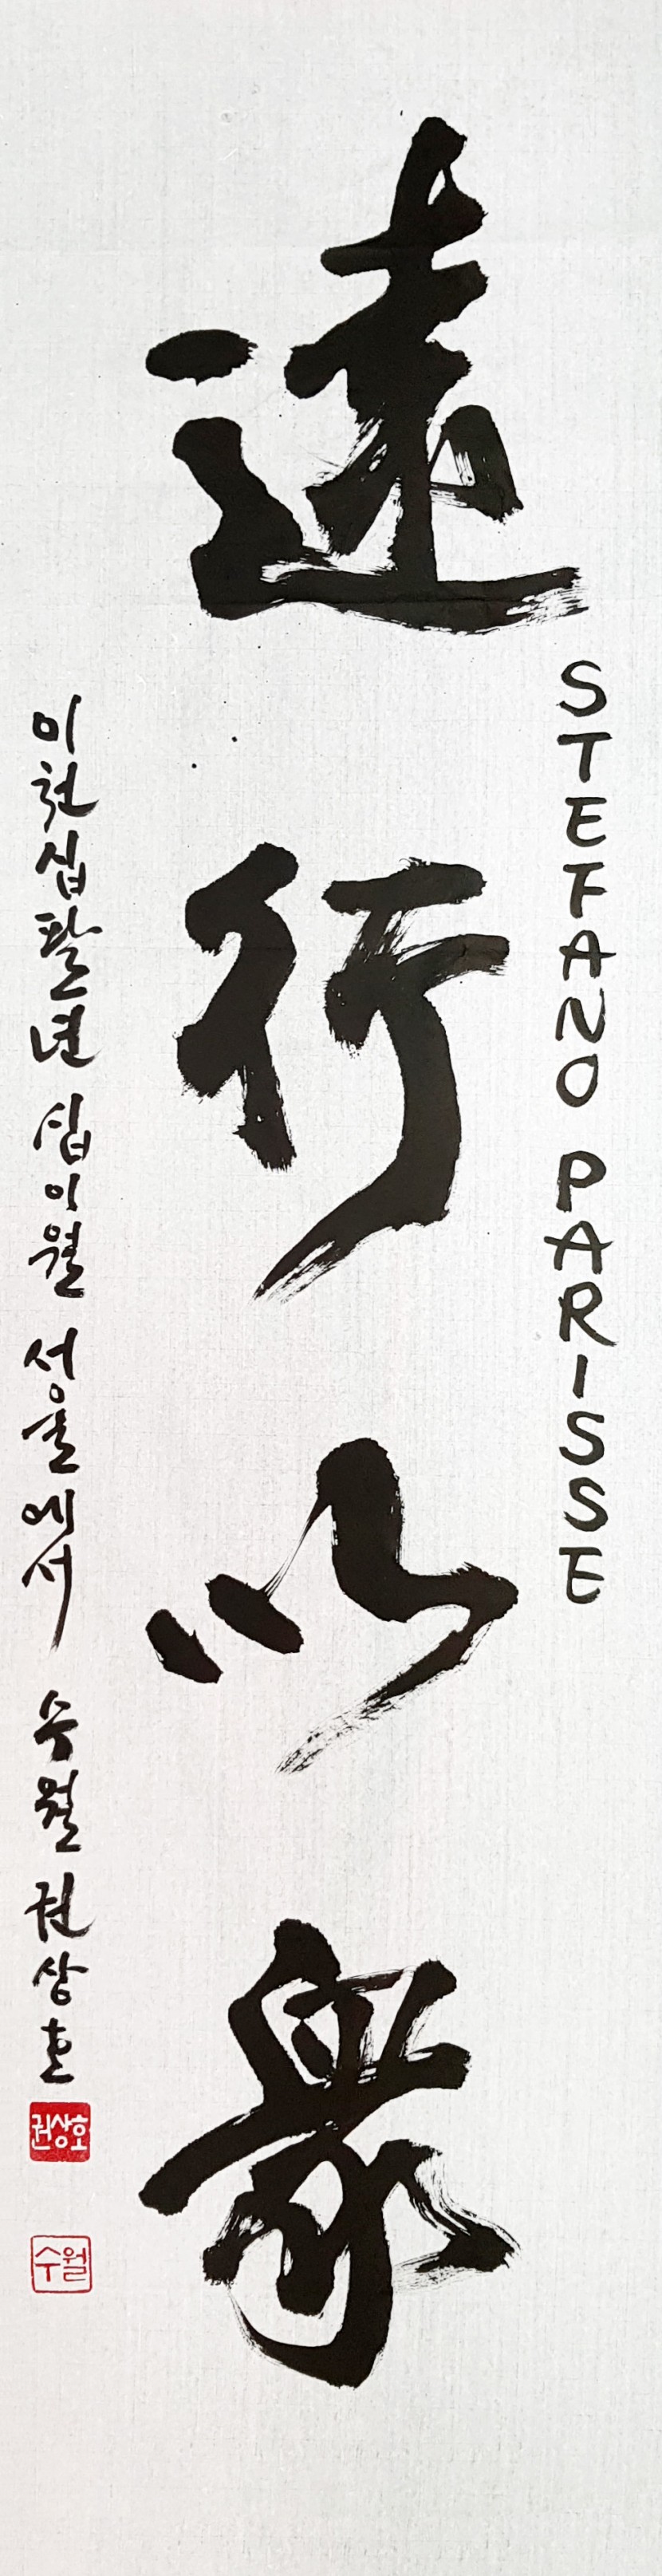 STEFANO PARISSE
遠行以衆
이천십팔년 십이월 서울에서 수월 권상호
권상호
수월